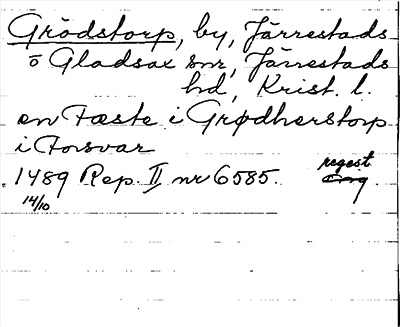 Grödstorp, by, Järrestads
o Gladsax snr, Järrestads
hd, Krist. l.
en Fæste i Grødherstorp
i Forsvar
1489 Rep. II nr 6585. regest
14/10 Orig